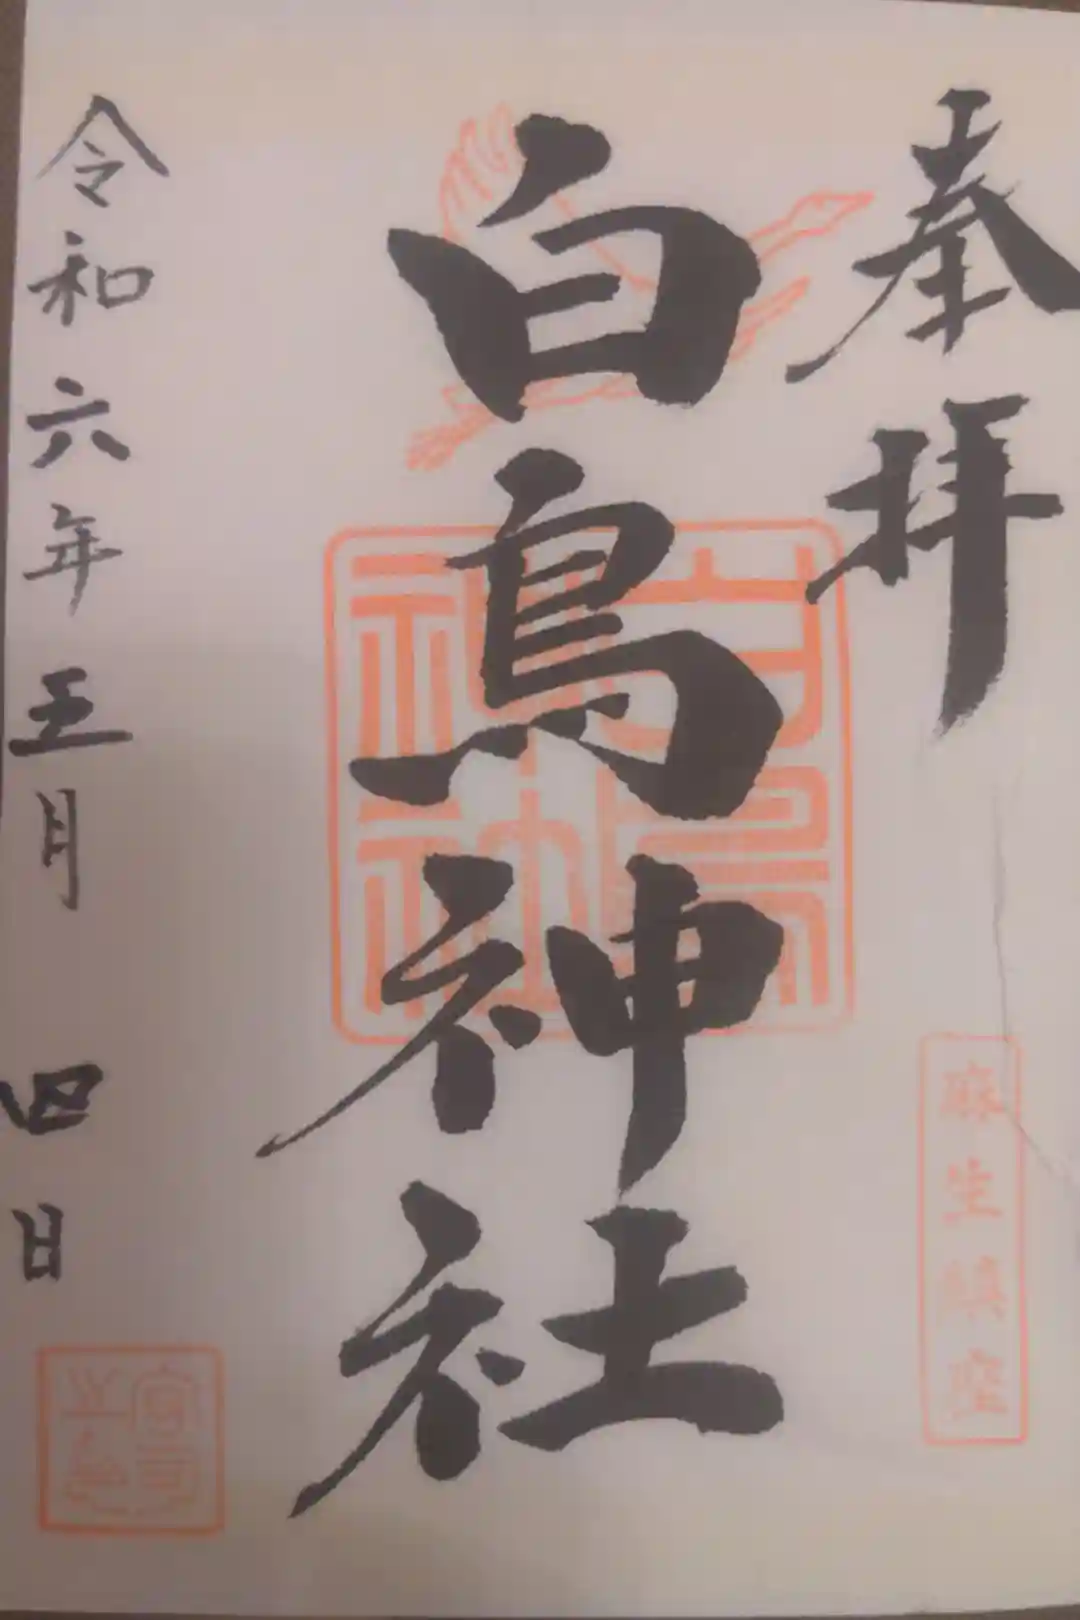 奉拝
麻生鎮座
白鳥神社
白鳥神社
令和六年五月四日
宮司之印